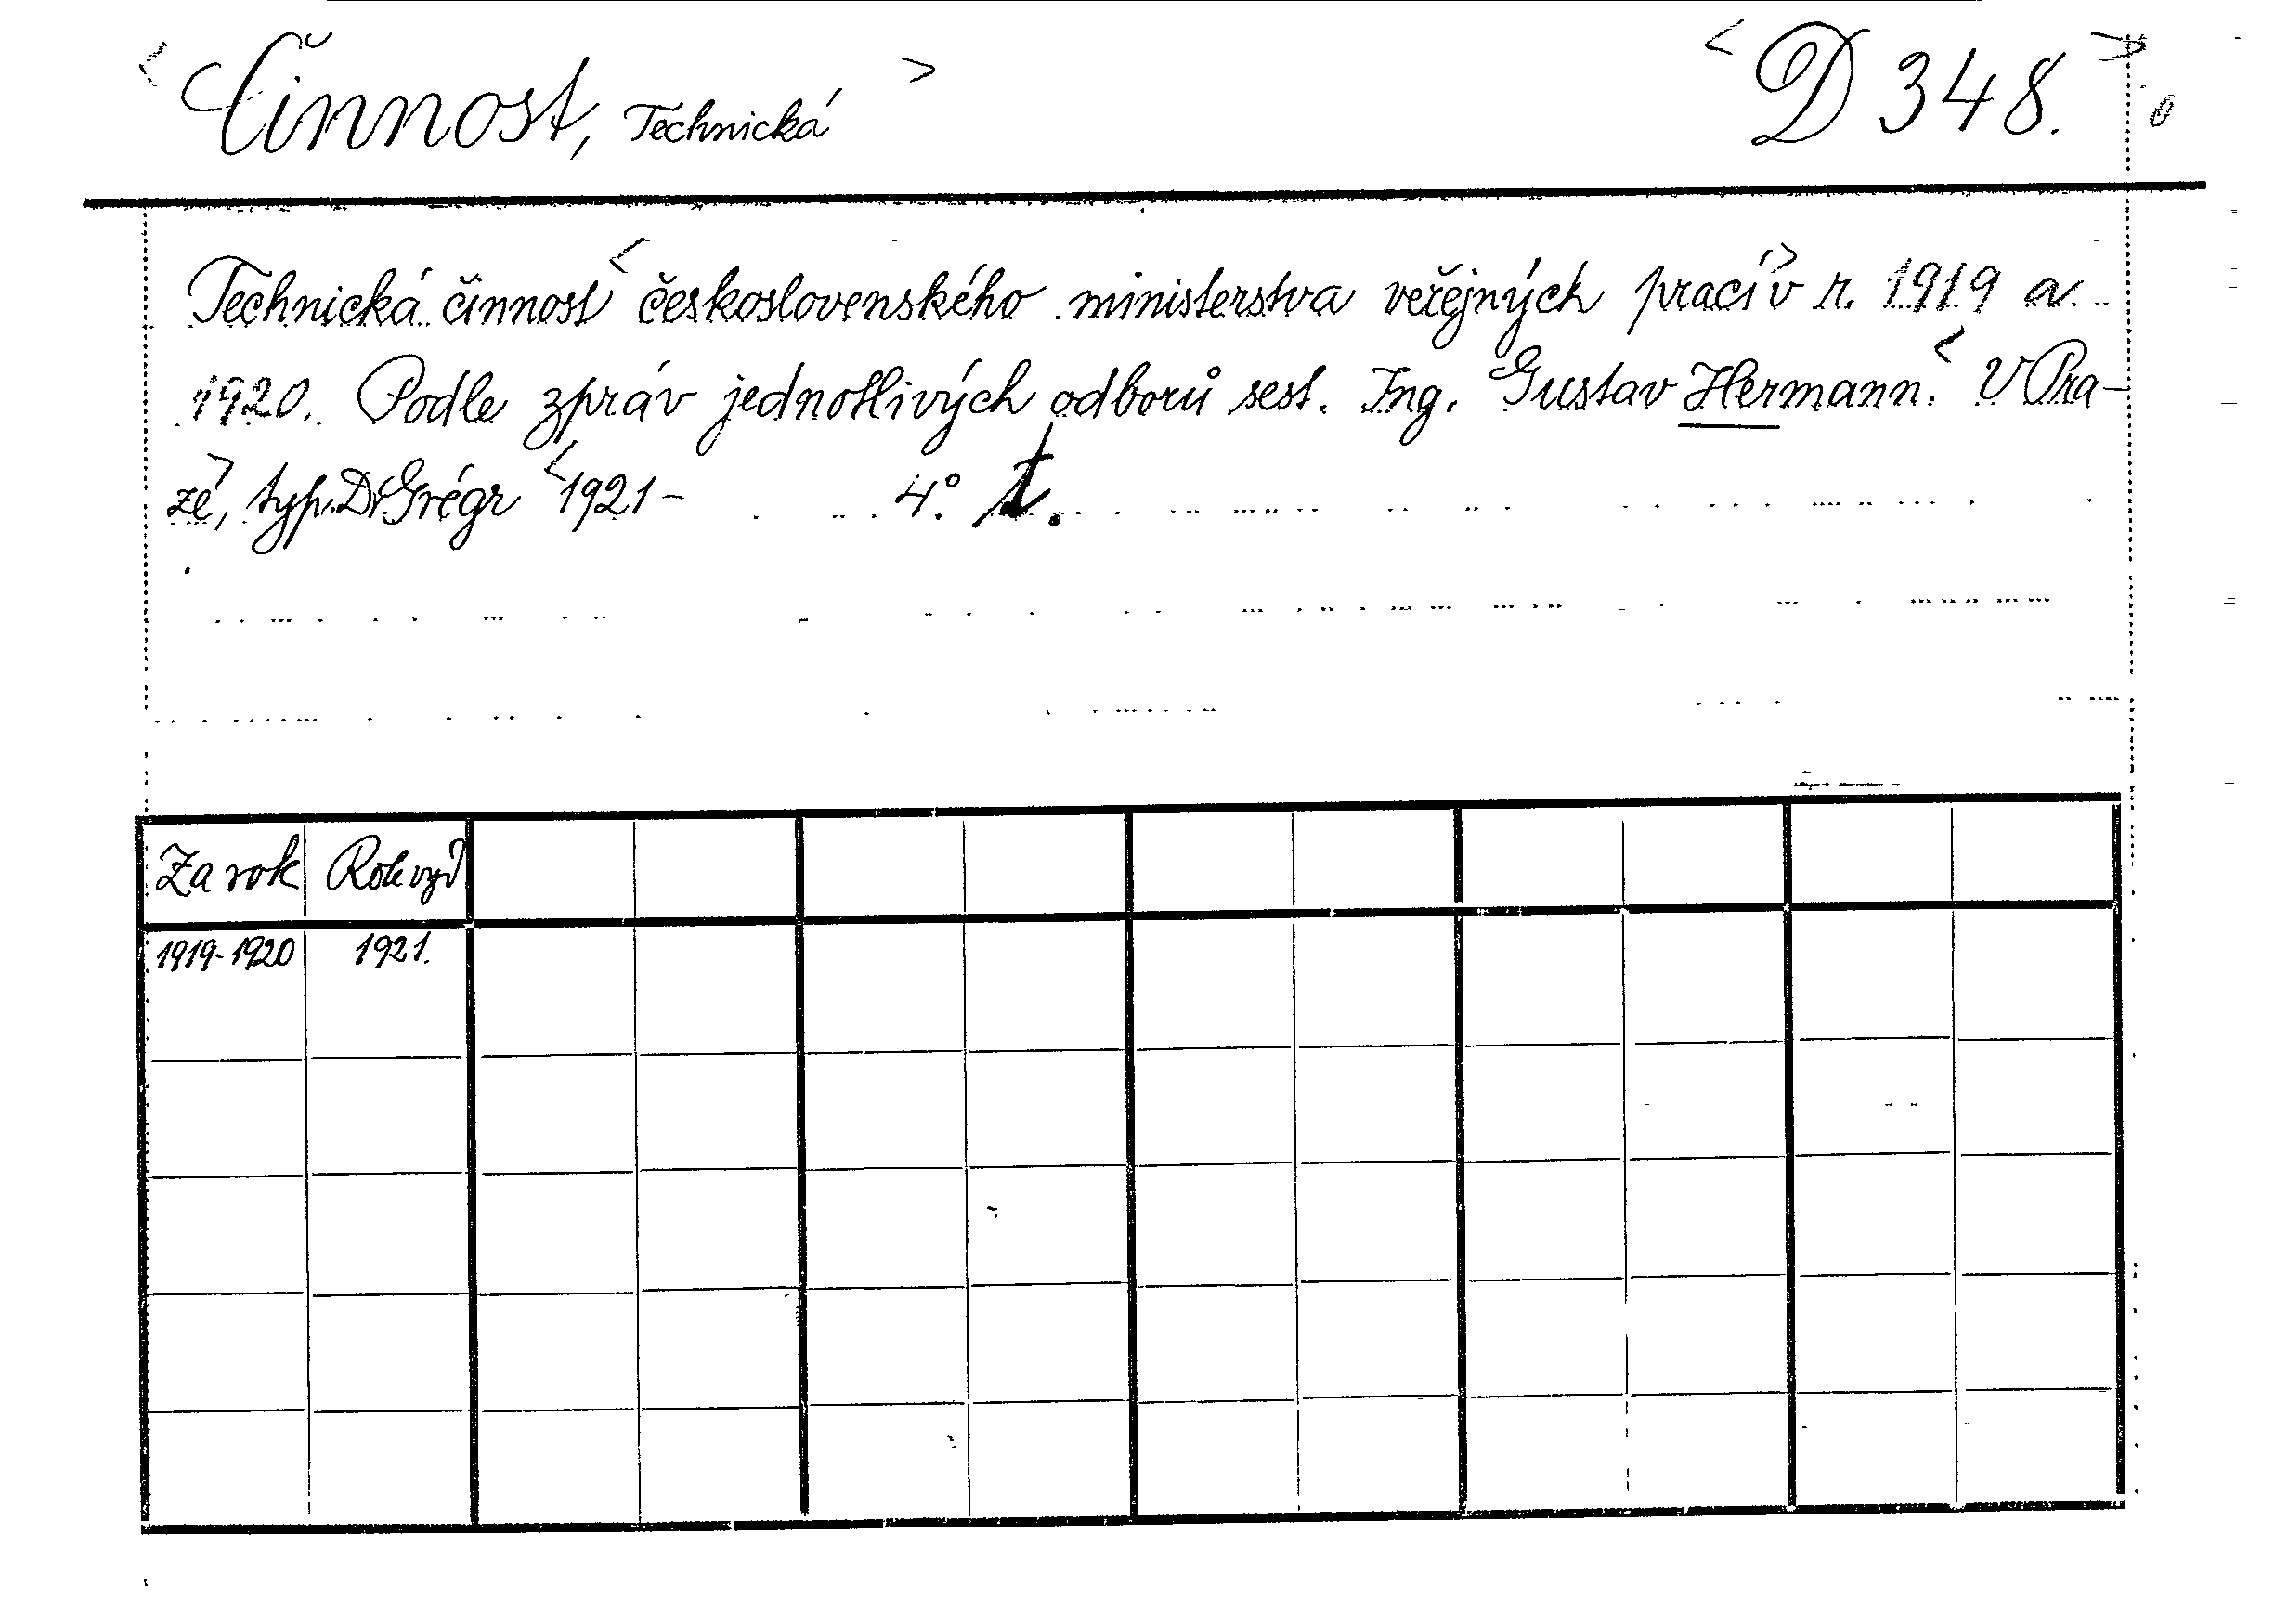 Činnost, Technická
D 348.
Technická činnost československého ministerstva veřejných prací v r. 1919 a
1920. Podle zpráv jednotlivých odborů sest. Ing. Gustav Hermann. V Pra-
ze, typ. Dr Grégr 1921- 4° t.
Za rok Rok vyd
1919-1920 1921.